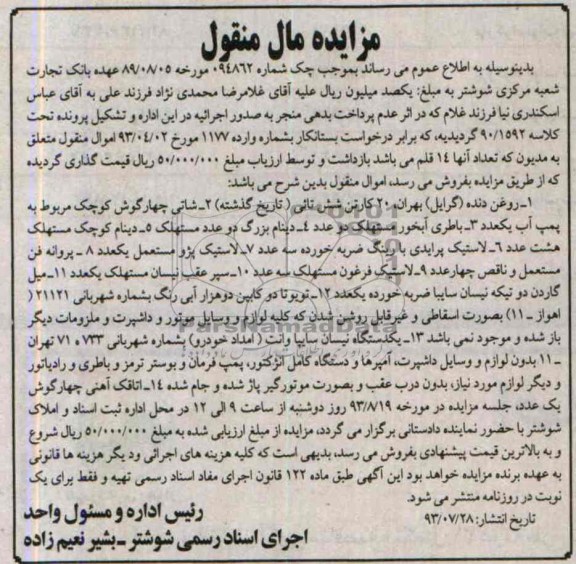 مزایده مال منقول
بدینوسیله به اطلاع عموم می رساند بموجب چک شماره ۰۹۴۸۶۲ مورخه ۸۹/۰۸/۰۵ عهده بانک تجارت
شعبه مرکزی شوشتر به مبلغ: یکصد میلیون ریال علیه آقای غلامرضا محمدی نژاد فرزند علی به آقای عباس
اسکندری نیا فرزند غلام که در اثر عدم پرداخت بدهی منجر به صدور اجرائیه در این اداره و تشکیل پرونده تحت
کلاسه ۹۰/۱۵۹۲ گردیدیه، که برابر درخواست بستانکار بشماره وارده ۱۱۷۷ مورخ ۹۳/۰۴/۰۲ اموال منقول متعلق
به مدیون که تعداد آنها ۱۴ قلم می باشد بازداشت و توسط ارزیاب مبلغ ۵۰/۰۰۰/۰۰۰ ریال قیمت گذاری گردیده
که از طریق مزایده بفروش می رسد، اموال منقول بدین شرح می باشد:
۱-روغن دنده (گرایل) بهران، ۲۰ کارتن شش تائی (تاریخ گذشته) ۲-شاتی چهارگوش کوچک مربوط به
پمپ آب یکعدد ۳-باطری آبخور مستهلک دو عدد ۴-دینام بزرگ دو عدد مستهلک ۵-دینام کوچک مستهلک
هشت عدد ۶-لاستیک پرایدی با رینگ ضربه خورده سه عدد ۷-لاستیک پژو مستعمل یکعدد ۸ - پروانه فن
مستعمل و ناقص چهارعدد ۹-لاستیک فرغون مستهلک سه عدد ۱۰-سپر عقب نیسان مستهلک یکعدد ۱۱-میل
گاردن دو تیکه نیسان سایپا ضربه خورده یکعدد ۱۲-تویوتا دو کابین دوهزار آبی رنگ بشماره شهربانی ۲۱۱۲۱ (
اهواز -۱۱) بصورت اسقاطی و غیرقابل روشن شدن که کلیه لوازم و وسایل موتور و داشپرت و ملزومات دیگر
باز شده و موجود نمی باشد ۱۳-یکدستگاه نیسان سایپا وانت (امداد خودرو) بشماره شهربانی ۷۳۳ ه ۷۱ تهران
-۱۱ بدون لوازم و وسایل داشپرت، آمپرها و دستگاه کامل انژکتور، پمپ فرمان و بوستر ترمز و باطری و رادیاتور
و دیگر لوازم مورد نیاز، بدون درب عقب و بصورت موتورگیر پاژ شده و جام شده ۱۴-اتاقک آهنی چهارگوش
یک عدد، جلسه مزایده در مورخه ۹۳/۸/۱۹ روز دوشنبه از ساعت ۹ الی ۱۲ در محل اداره ثبت اسناد و املاک
شوشتر با حضور نماینده دادستانی برگزار می گردد، مزایده از مبلغ ارزیابی شده به مبلغ ۵۰/۰۰۰/۰۰۰ ریال شروع
و به بالاترین قیمت پیشنهادی بفروش می رسد، بدیهی است که کلیه هزینه های اجرائی ودیگر هزینه ها قانونی
به عهده برنده مزایده خواهد بود این آگهی طبق ماده ۱۲۲ قانون اجرای مفاد اسناد رسمی تهیه و فقط برای یک
نوبت در روزنامه منتشر می شود.
تاریخ انتشار: ۹۳/۰۷/۲۸
رئیس اداره و مسئول واحد
اجرای اسناد رسمی شوشتر -بشیر نعیم زاده
ParsNamadData